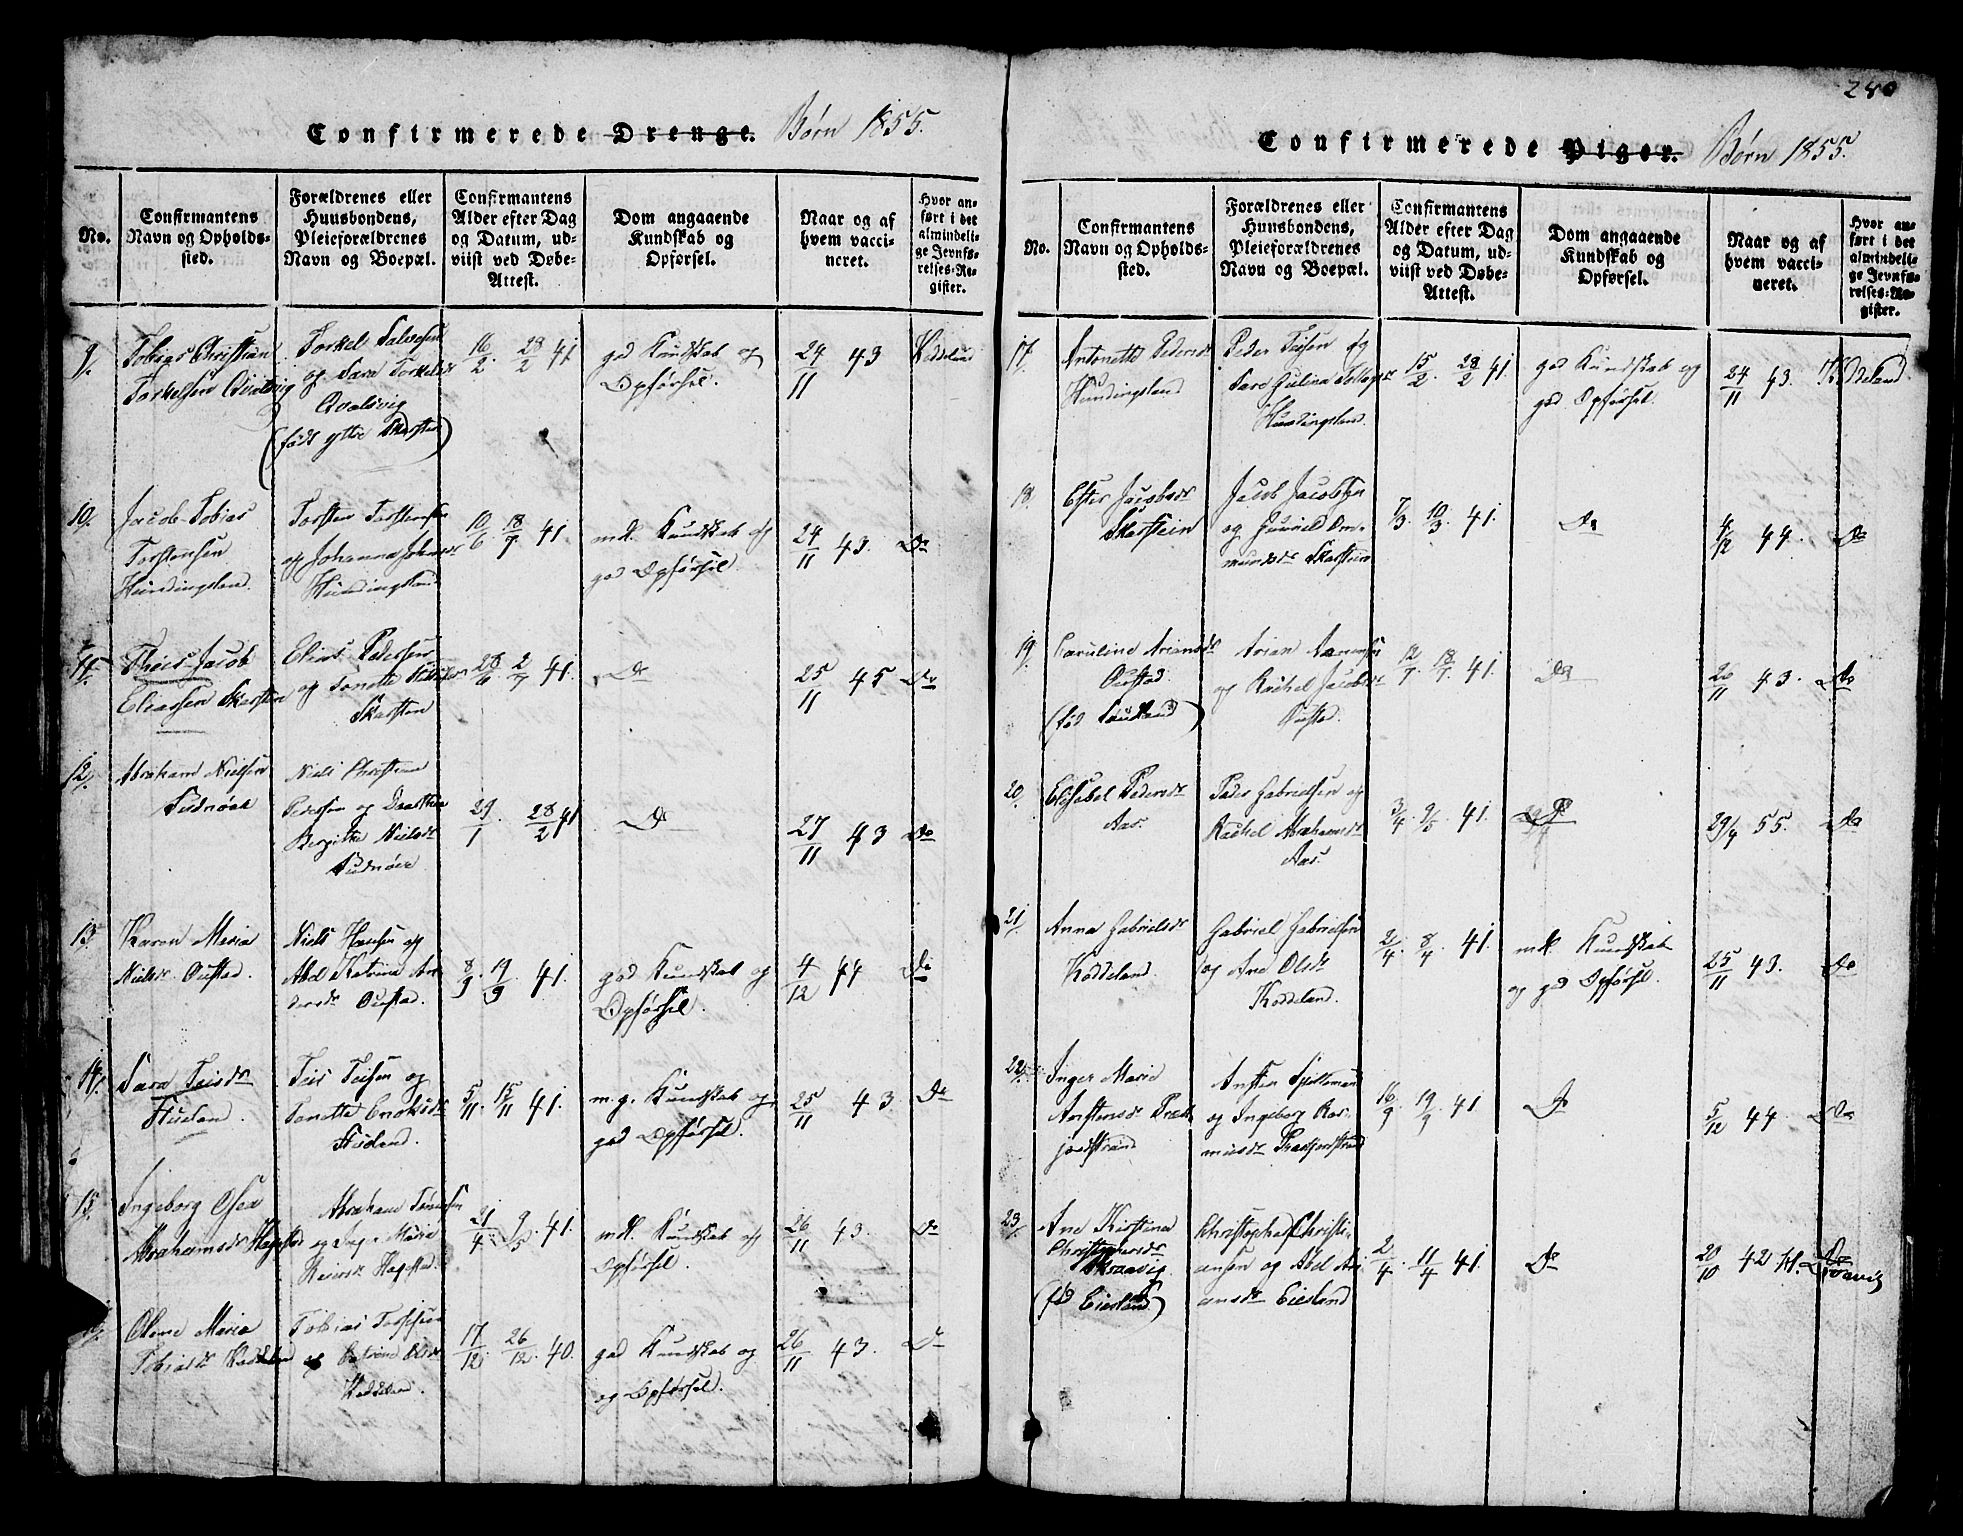 280
Confirmerede Drenge. Børn 1855.
No.
Confirmantens
Navn og Opholds-
sted.
Forældrenes eller
Huusbondens,
Pleieforældrenes
Navn og Boepæl.
Confirmantens
Alder efter Dag
og Datum, ud-
viist ved Døbe-
Attest.
Dom angaaende
Kundskab og
Opførsel.
Naar og af
hvem vacci-
neret.
Hvor an-
ført i det
almindeli-
ge Jevnfø-
relses-Re-
gister.
9. Tobias Christian
Torkelsen Qvalsvig
Torkel Salvesen
og Sara Torkelsdr
Qvalsvig
(født ytre Skarsten)
16/2. 28/2 41.
god Kundskab og
Opførsel.
24/11 43
10. Jacob Tobias
Torstensen
Hundingsland.
Torsten Torstensen
og Johanna
Hundingsland
10/6. 18/7 41.
md. Kundskab og
god Opførsel
24/11 43. Do
11. Theis Jacob
Eliassen Skarsten
Elias Pedersen
og Tonette
Skarsten
28/6 2/7 41.
Do
25/11 45 Do
12. Abraham Nielsen
Niels Christian
Pedersen og
Bergitte Nielsdr
29/1. 28/2 41
Do
27/11 43 Do
13. Karen Maria
Nielsdr Oustad.
Niels Hansen og
Abel Katrina
Oustad.
8/9. 19/9 41.
god Kundskab og
Opførsel.
4/12 44 Do
14. Sara Teisdr
Teis Teisen og
Tonette Enoksdr
5/11. 15/11 41.
m. g. Kundskab og
god Opførsel.
25/11 43 Do
15. Ingeborg Osea
Abrahamsdr Hogstad
Abraham Tønnesen
og Inger Marie
Reiersdr Hogstad.
21/4. 9/5. 41.
md. Kundskab og
Opførsel.
26/11 43. Do
Olene Maria
Tobiasdr Koddeland
Tobias
og Olsdr
Koddeland.
17/12. 26/12. 40.
god Kundskab og
og Opførsel.
26/11 43. Do
Confirmerede Piger. Børn 1855.
No.
Confirmantens
Navn og Opholds-
sted.
Forældrenes eller
Huusbondens,
Pleieforældrenes
Navn og Boepæl.
Confirmantens
Alder efter Dag
og Datum, ud-
viist ved Døbe-
Attest.
Dom angaaende
Kundskab og
Opførsel.
Naar og af
hvem vacci-
neret.
Hvor an-
ført i det
almindeli-
ge Jevnfø-
relses-Re-
gister.
17. Antonette Pedersdr
Hundingsland
Peder Teisen og
Sara Gulina
Hundingsland.
15/2. 28/2 41.
god Kundskab og
god Opførsel.
24/11 43. Koddeland.
18. Ester Jacobsdr
Skarstein
Jacob Jacobsen
og Gunild Om-
mundsdr Skarstein
7/3. 10/3. 41.
Do
4/12 44. Do
19. Caroline Ariansdr
Oustad.
Arian Aanensen
og Rachel Jacobsdr
Oustad.
12/7. 18/7. 41.
Do
26/11 43. Do
20. Elisabet Pedersdr
Aas.
Peder Gabrielsen og
Rachel Abrahamsdr
Aas.
3/4. 9/5. 41.
Do
29/9 55. Do
21. Anna Gabrielsdr
Koddeland.
Gabriel Gabrielsen
og Ane Olsdr
Koddeland.
2/4. 8/4 41.
md. Kundskab
og god Opførsel.
25/11 43. Do
22. Inger Marie
Anstensdr Præst-
jordstrand
Ansten Spillemand
og Ingeborg Ras-
musdr Præstjordstrand
16/9. 19/9. 41
Do
5/12 44. Do
23. Ane Kirstina
Christophersdr
(fød Eiesland)
Christopher Christi-
ansen og Abel Ari-
ansdr Eiesland
2/4. 11/4 41.
Do
20/10 42